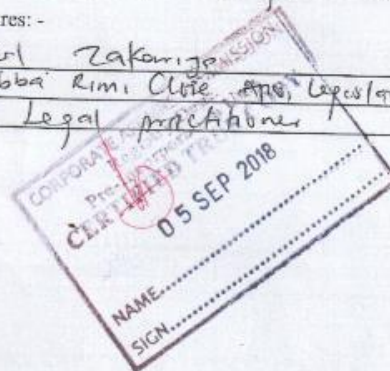 res: -
Zakariya
Rimi Close Apo, Legislat
Legal practitioner
CORPORATE AFFAIRS COMMISSION
CERTIFIED TRUE COPY
05 SEP 2018
NAME
SIGN